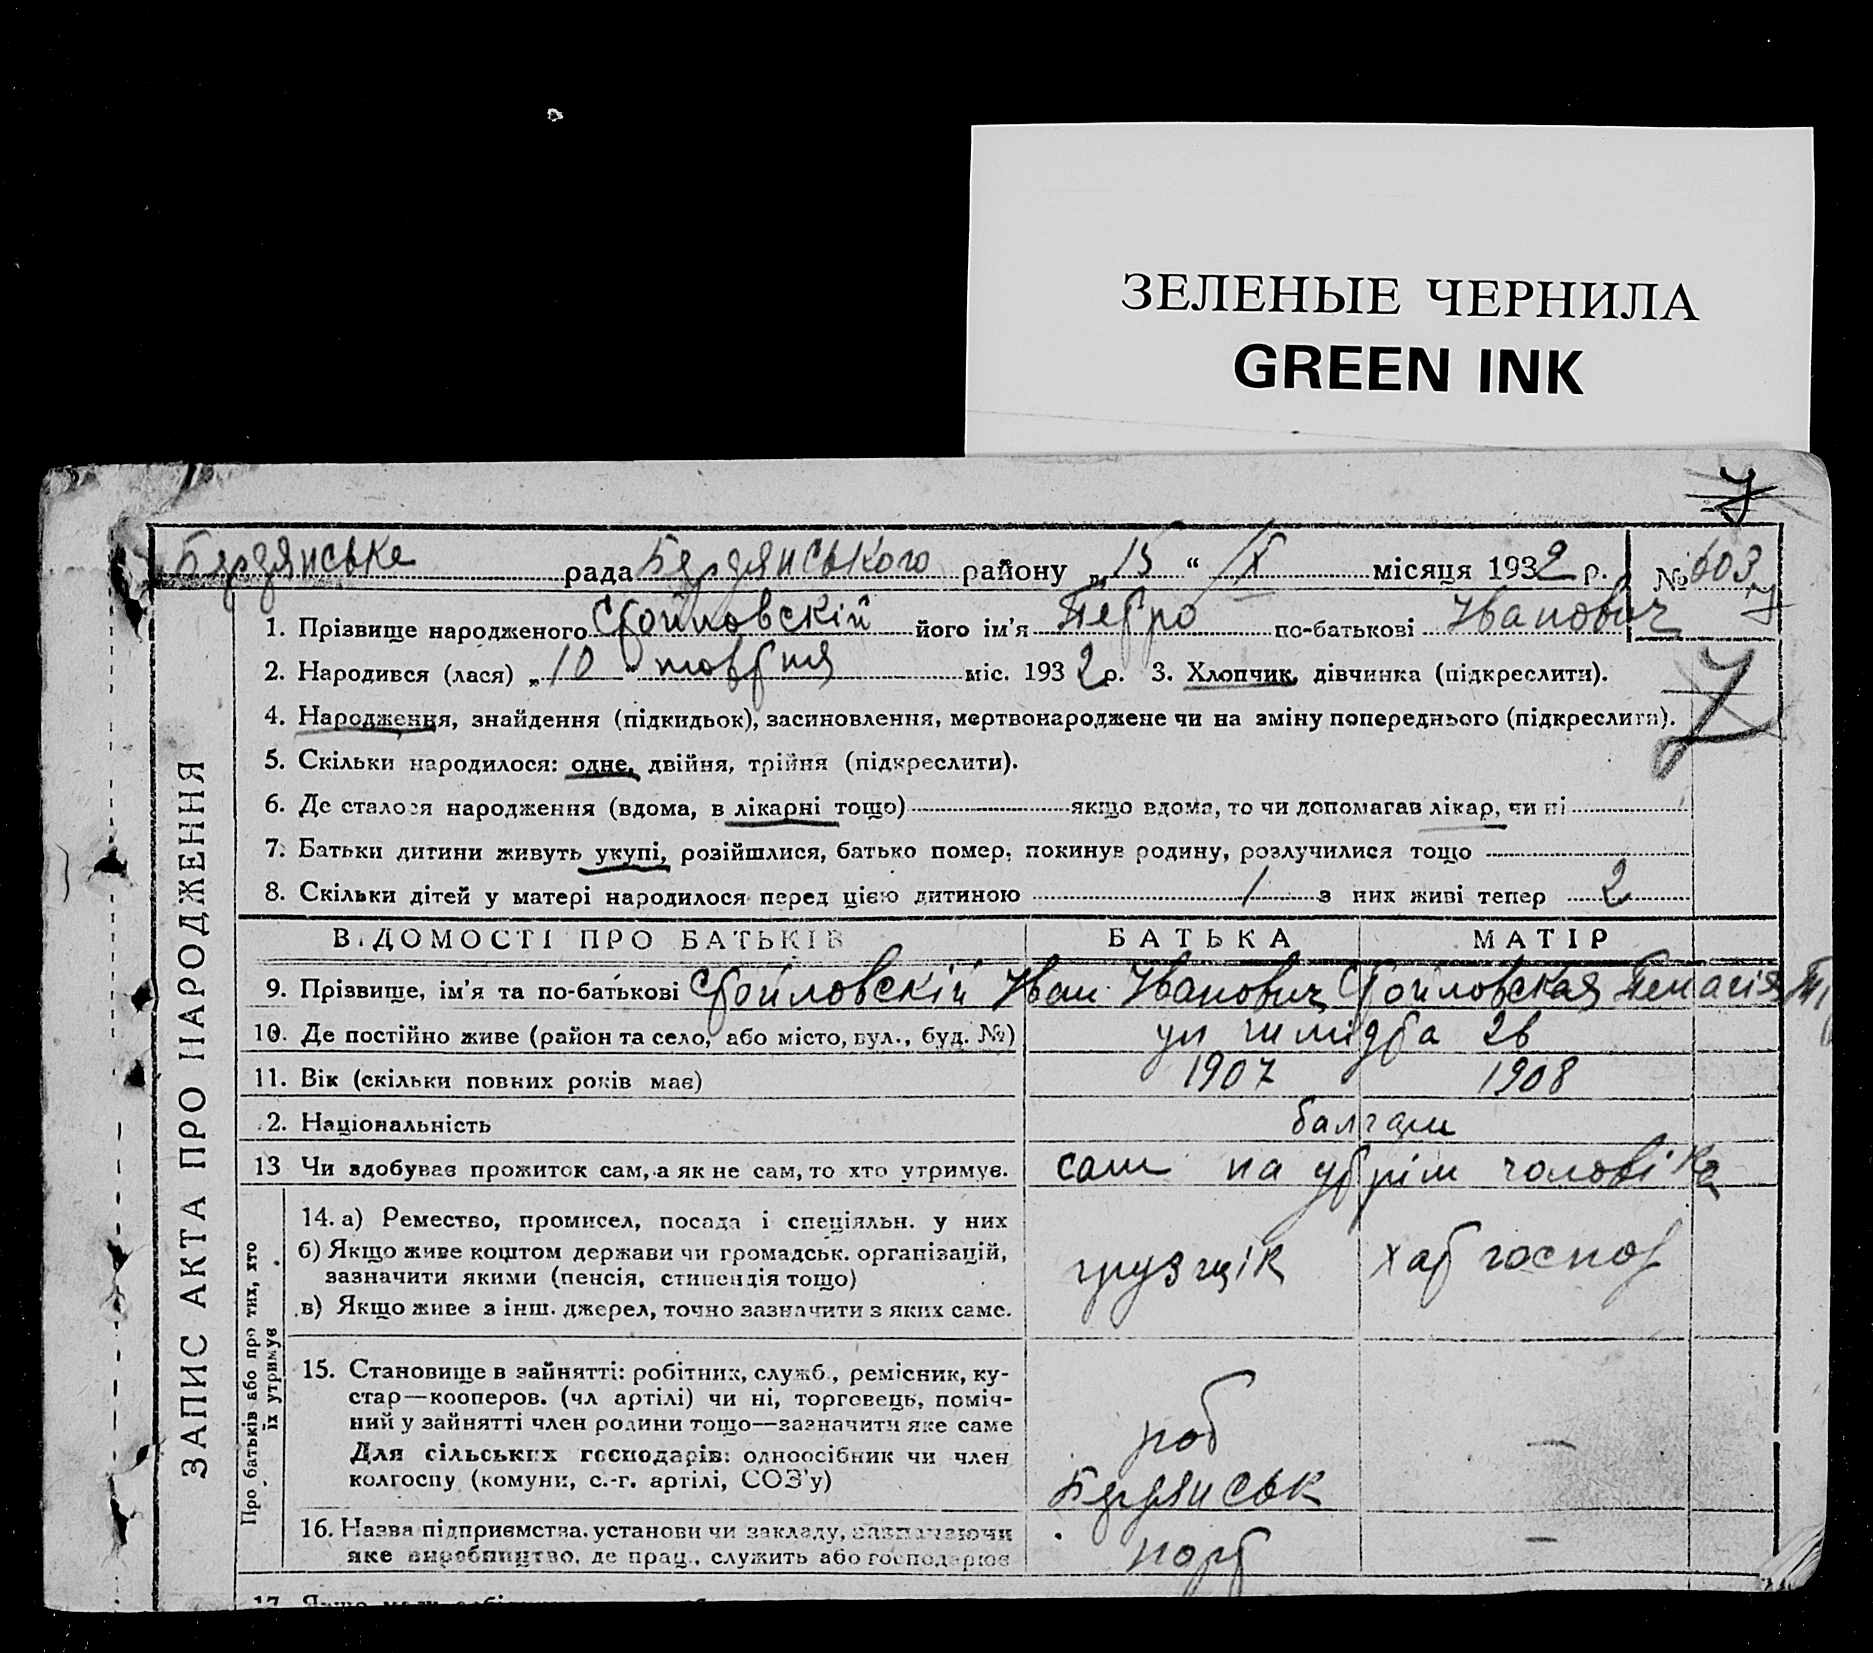 ЗЕЛЕНЫЕ ЧЕРНИЛА
GREEN INK
Бердянське рада Бердянського району „ 15 “ IX місяця 1932 р. № 603
1. Прізвище народженого Стойловскій його ім’я Петро по-батькові Іванович
2. Народився (лася) „ 10 жовтня міс. 1932 р. 3. Хлопчик, дівчинка (підкреслити).
4. Народження, знайдення (підкидьок), засиновлення, мертвонароджене чи на зміну попереднього (підкреслити).
5. Скільки народилося: одне, двійня, трійня (підкреслити).
6. Де сталося народження (вдома, в лікарні тощо) якщо вдома, то чи допомагав лікар, чи ні
7. Батьки дитини живуть укупі, розійшлися, батько помер, покинув родину, розлучилися тощо
8. Скільки дітей у матері народилося перед цією дитиною 1 з них живі тепер 2
ВІДОМОСТІ ПРО БАТЬКІВ БАТЬКА МАТІР
9. Прізвище, ім’я та по-батькові Стойловскій Иван Иванович Стойловская
10. Де постійно живе (район та село, або місто, вул., буд. №) ул
11. Вік (скільки повних років має) 1907 1908
2. Національність балгари
13 Чи здобуває прожиток сам, а як не сам, то хто утримує. сам на утрім чоловіка
14. а) Ремество, промисел, посада і спеціяльн. у них
б) Якщо живе коштом держави чи громадськ. організацій,
зазначити якими (пенсія, стипендія тощо) грузщік хат господ
в) Якщо живе з інш. джерел, точно зазначити з яких саме.
15. Становище в зайнятті: робітник, служб., ремісник, ку-
стар—кооперов. (чл артілі) чи ні, торговець, поміч-
ний у зайнятті член родини тощо—зазначити яке саме роб —
Для сільських господарів: одноосібник чи член
колгоспу (комуни, с.-г. артілі, СОЗ’у) Бердянськ
16. Назва підприємства, установи чи закладу, зазначаючи
яке виробництво, де прац., служить або господарює порт —
ЗАПИС АКТА ПРО НАРОДЖЕННЯ
Про батьків або про тих, хто
їх утримує